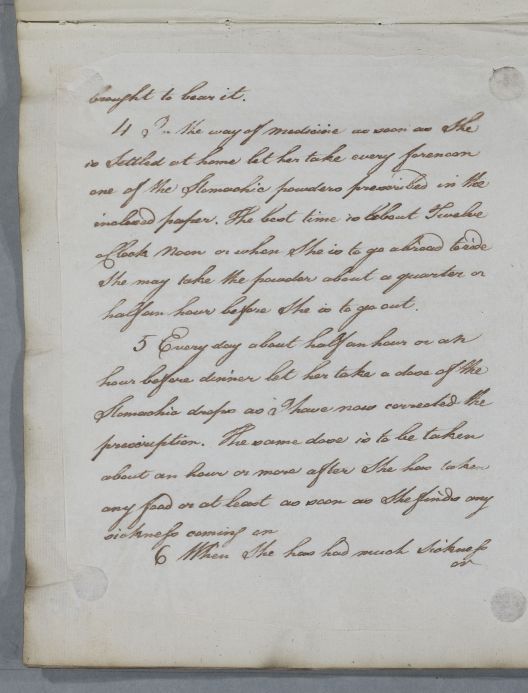 brought to bear it.
4 In the way of medicine as soon as She
is Settled at home let her take every forenoon
one of the Stomachic powders prescribed in the
inclosed paper. The best time is about Twelve
oClock Noon or when She is to go abroad to ride
She may take the powder about a quarter or
half an hour before She is to go out.
5 Every day about half an hour or an
hour before dinner let her take a dose of the
Stomachic drops as I have now corrected the
prescription. The same dose is to be taken
about an hour or more after She has taken
any food or at least as soon as She finds any
sickness coming on
6 When She has had much Sickness
or